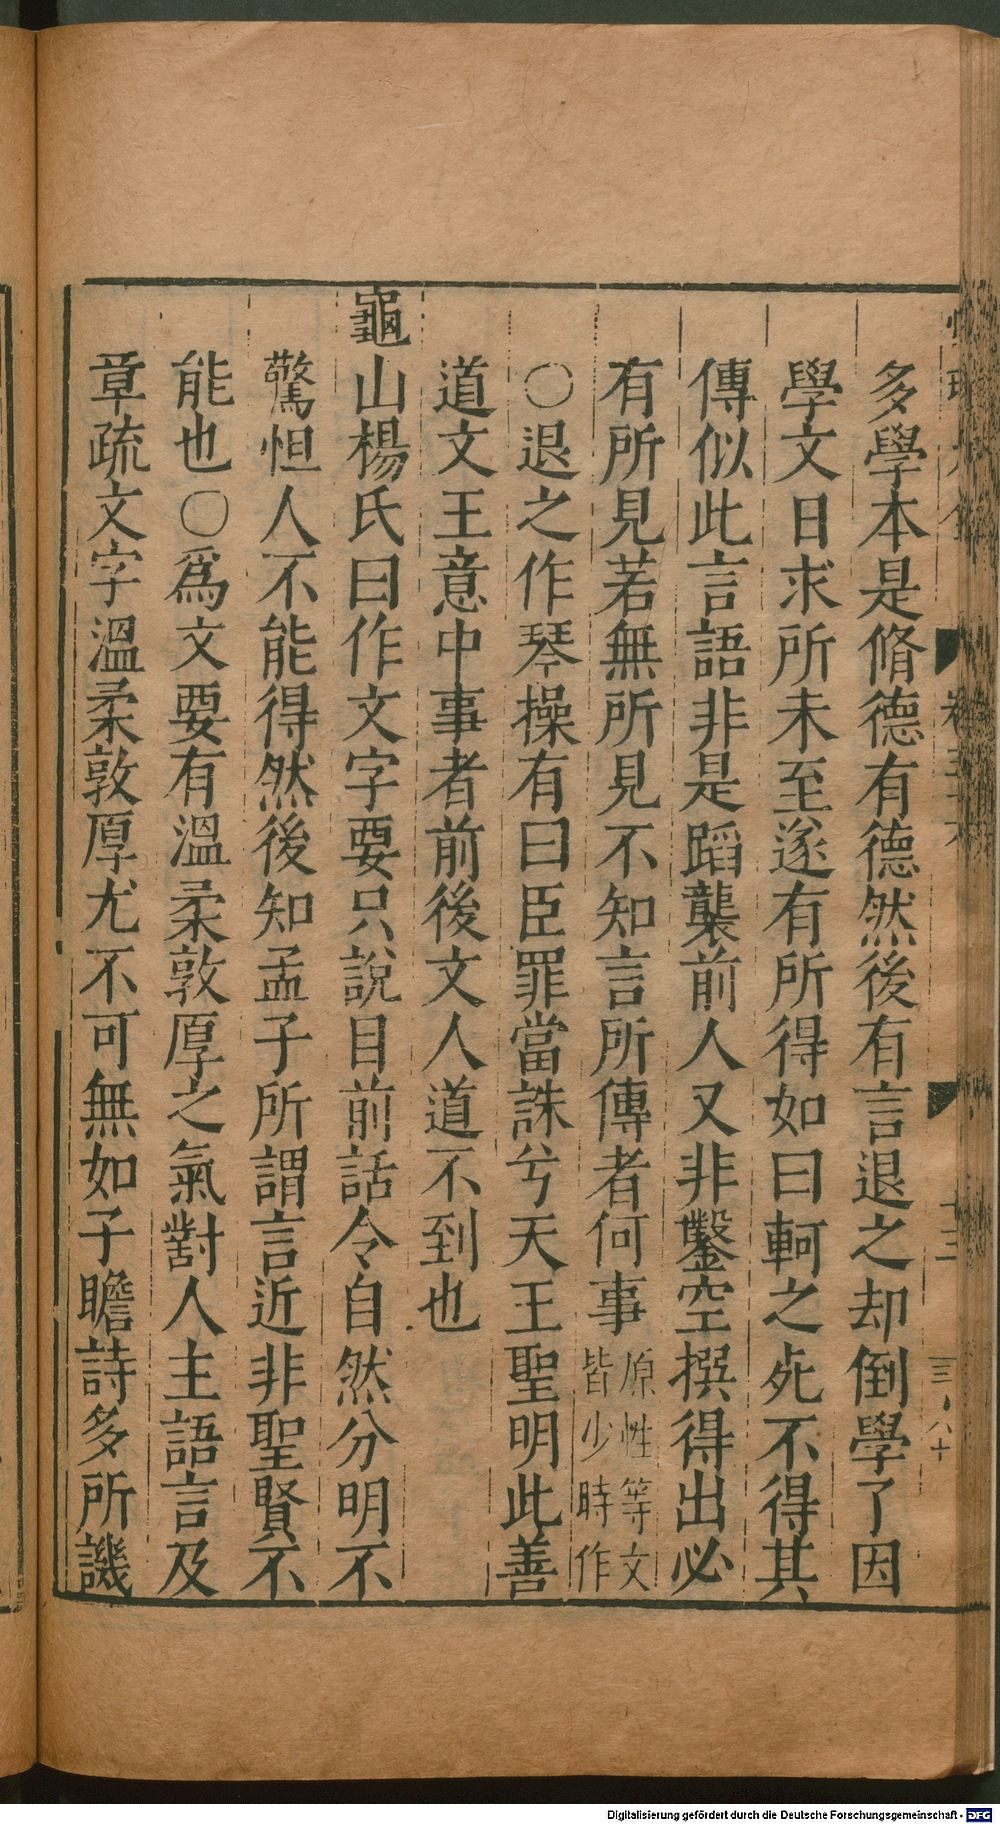 多學本是脩德有德然後有言退之却倒學了因
學文日求所未至遂有所得如曰軻之死不得其
傳似此言語非是蹈襲前人又非鑿空撰得出必
有所見若無所見不知言所傳者何事原性等文皆少時作
○退之作琴操有曰臣罪當誅兮天王聖明此善
道文王意中事者前後文人道不到也
龜山楊氏曰作文字要只說目前話令自然分明不
驚怛人不能得然後知孟子所謂言近非聖賢不
能也○爲文要有溫柔敦厚之氣對人主語言及
章疏文字溫柔敦厚尤不可無如子瞻詩多所譏
Digitalisierung gefördert durch die Deutsche Forschungsgemeinschaft - DFG